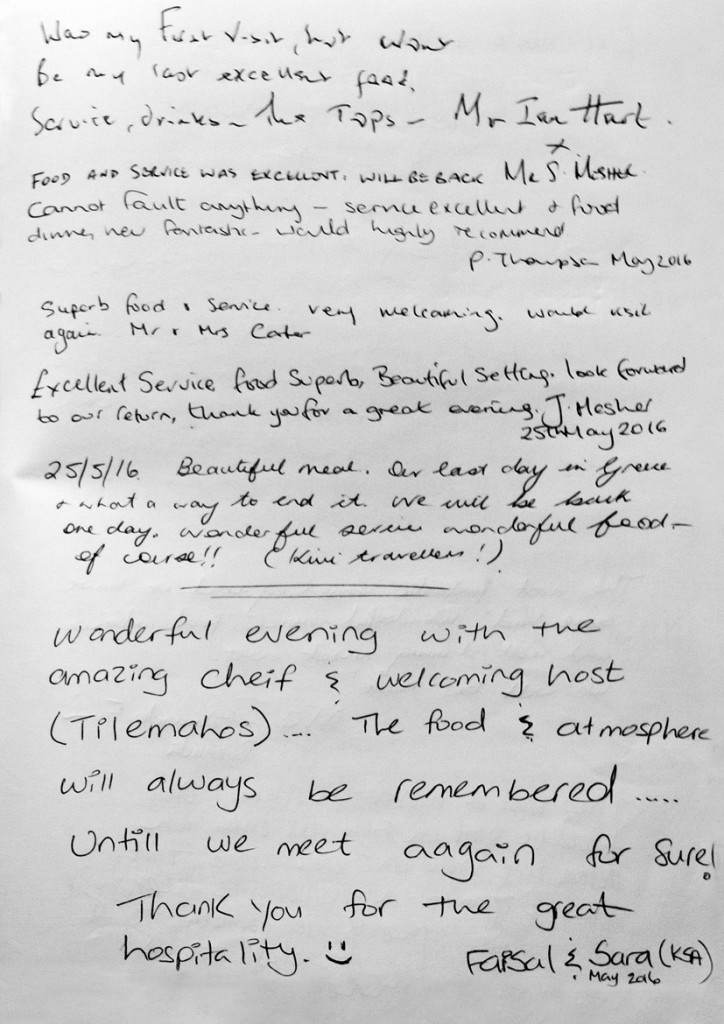 Was my First visit, but wont
Be my last excellent food,
Service, drinks - the Tops - Mr Ian Hart.
x
FOOD AND SERVICE WAS EXCELLENT. WILL BE BACK Mr S. MOSHER.
Cannot fault anything - service excellent & food
fantastic - would highly recommend
P. Thompson May 2016
Superb food & service. very welcoming. would visit
again Mr & Mrs Carter
Excellent Service food Superb, Beautiful Setting. look forward
to our return, thank you for a great evening. J. Mosher
25th May 2016
25/5/16. Beautiful meal. Our last day in Greece
& what a way to end it. We will be back
one day. Wonderful service wonderful food -
of course!! (Kiwi travellers!)
Wonderful evening with the
amazing cheif & welcoming host
(Tilemahos).... The food & atmosphere
will always be remembered.....
Untill we meet aagain for sure!
Thank you for the great
hospitality. :)
Faisal & Sara (KSA)
May 2016